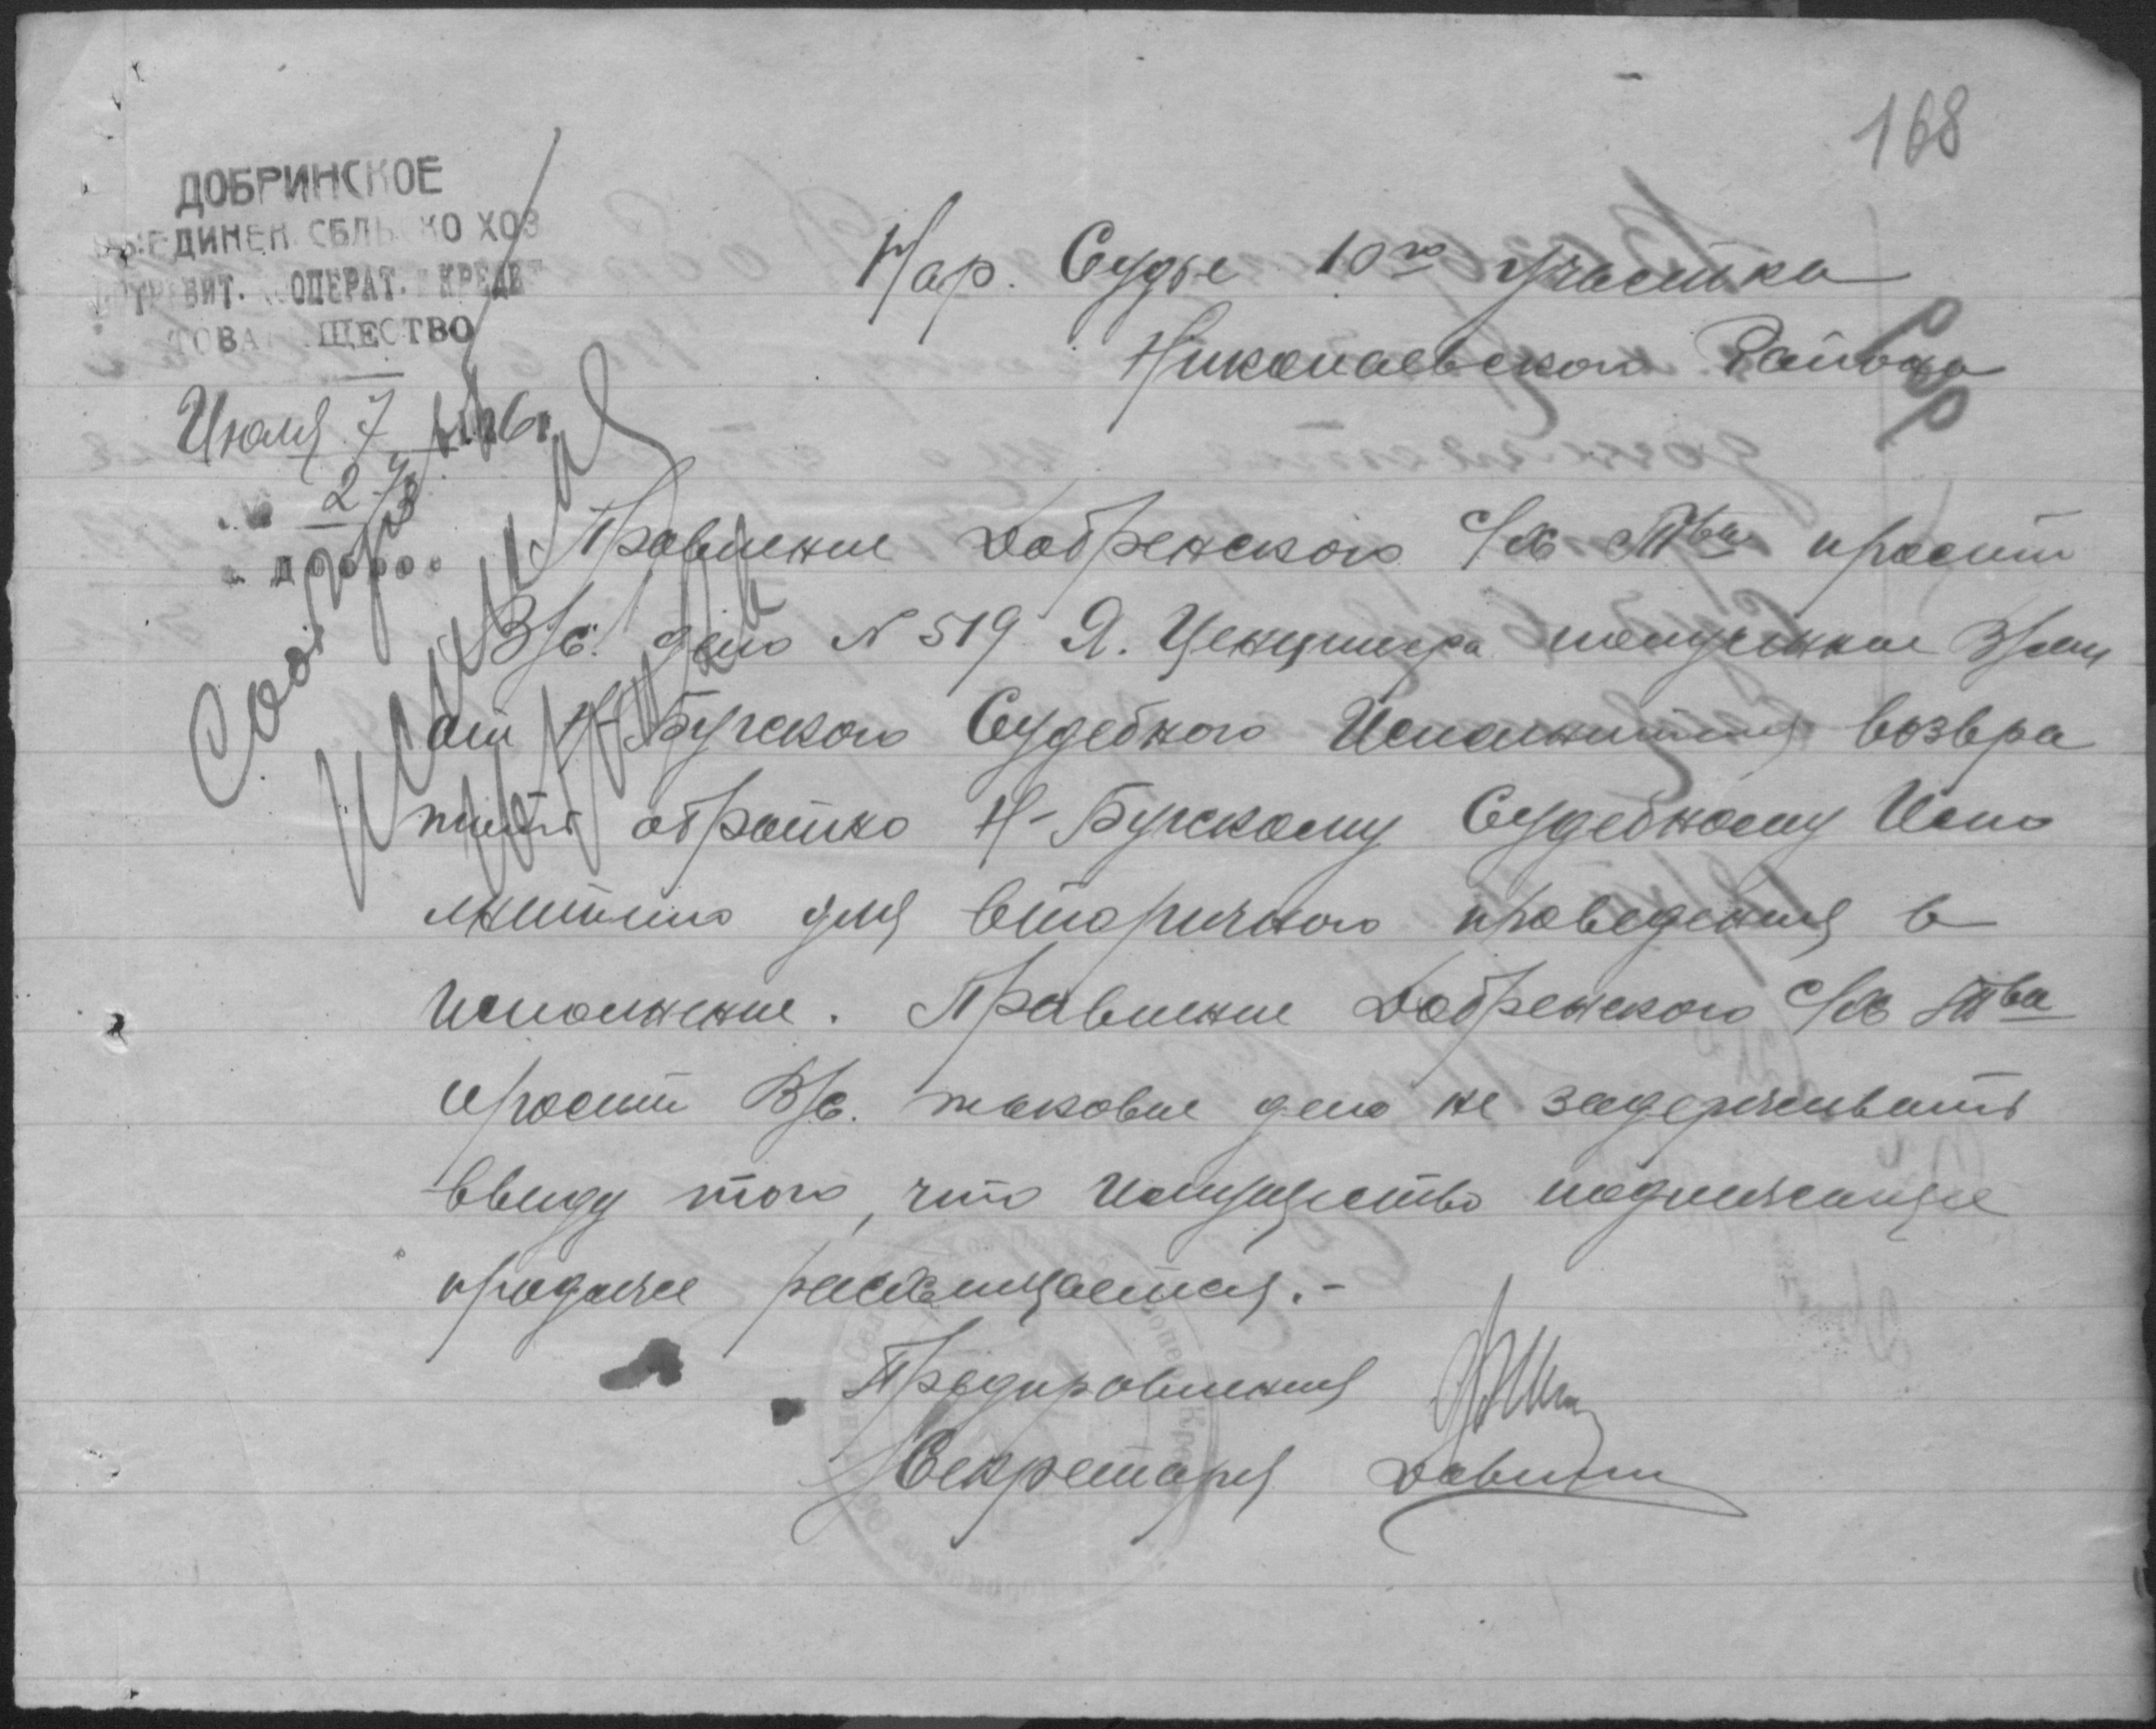 168
ДОБРИНСКОЕ
ОБЪЕДИНЕН. СЕЛЬСКО ХОЗ
ПОТРЕБИТ. КООПЕРАТ. КРЕДИТ
ТОВАРИЩЕСТВО
Июля 7 1926 г.
с. Доброе
Нар. Судье 10го участка
Николаевского Района
Правление Добренского с/х Тва просит
В/с. дело N 519 Я. Ценципера полученное Вами
от Н-Бугского Судебного Исполнителя возвра
тить обратно Н-Бугскому Судебному Испо
лнителю для вторичного проведения в
исполнение. Правление Добренского с/х Тва
просит В/с. таковое дело не задерживать
ввиду того, что имущество подлежащее
продаже расхищается.-
Предправления
Секретарь